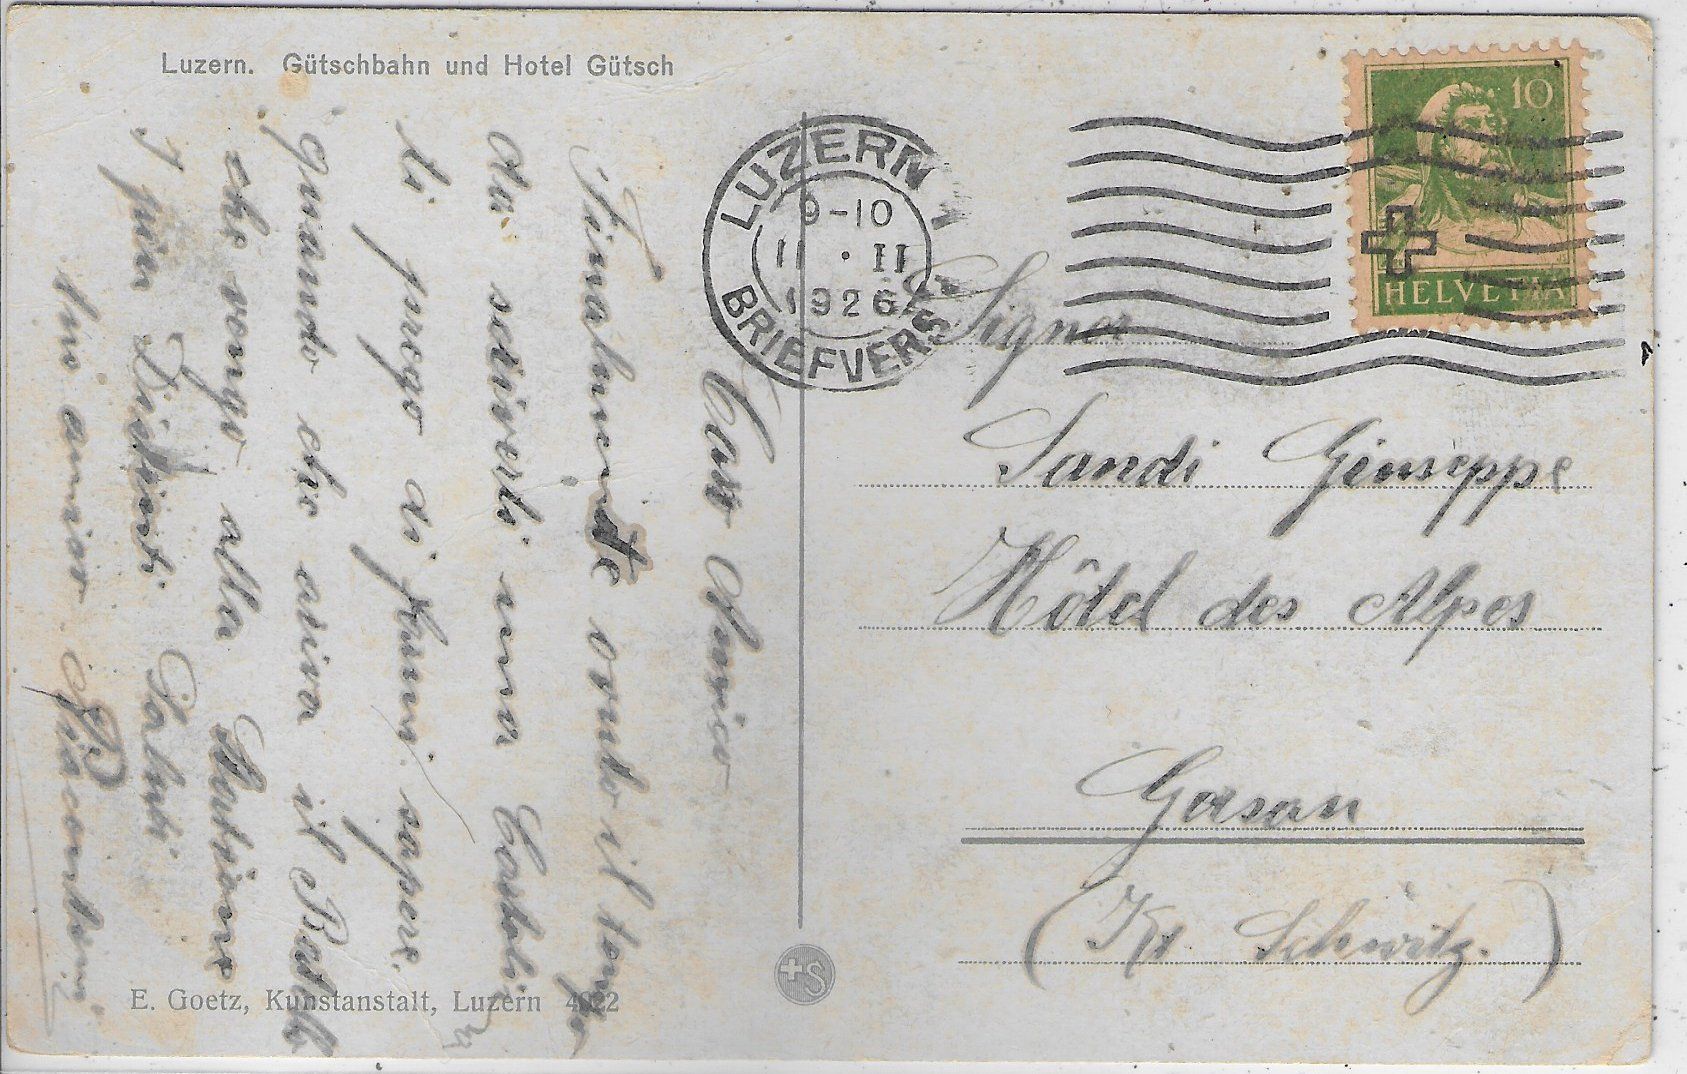 Luzern. Gütschbahn und Hotel Gütsch
LUZERN 1
9-10
11 · II
1926
BRIEFVERS
10
HELVETIA
Caro Amico
Finalmente ò il tempo
da scriverti una Cartolin
ti prego di farmi sapere
quando che ariva il
che vengo alla Stazione
i piu Distinti Saluti
tuo amico
Signor
Sandi Giuseppe
Hôtel des Alpes
Gosau
(Kt Schwitz.)
E. Goetz, Kunstanstalt, Luzern 4022
+S